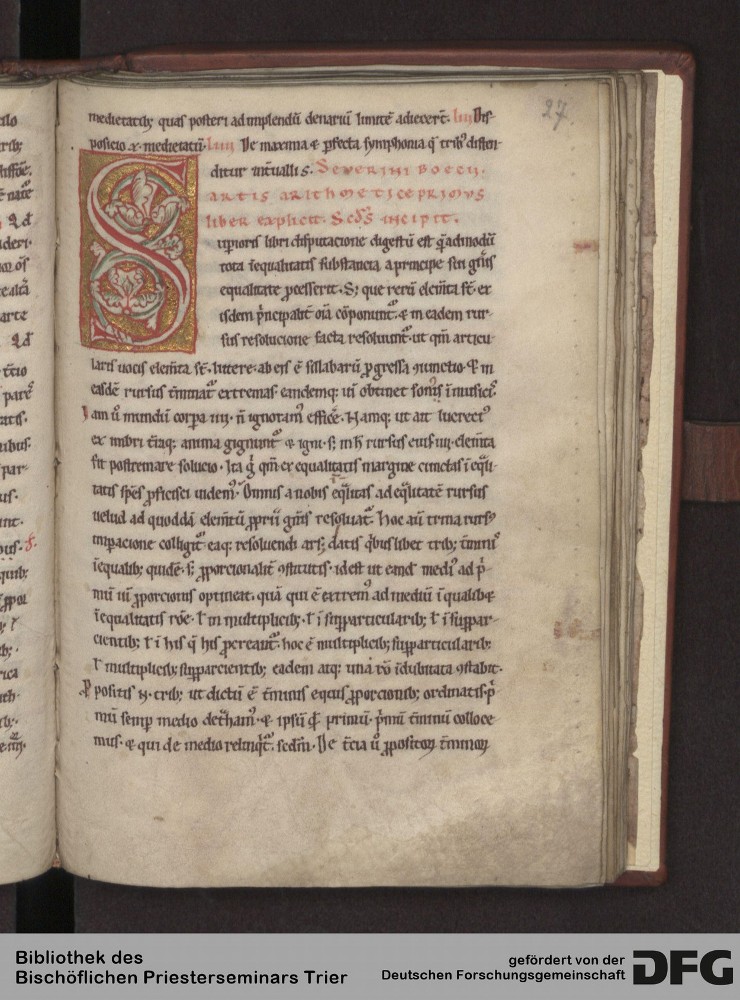 27
medietatib; quas posteri ad implendū denariū limitē adiecert. liii Dis-
posicio x medietatū. Liiii De maxima & pfecta symphonia q̄ trib; disten-
ditur int̄uallis. Severini Boecii.
artis arithmeticę primus
liber explicit. Scds incipit.
Superioris libri disputacione digestū est q̄admodū
tota īequalitatis substancia a principe sui gn̄is
equalitate pcesserit. S; que rerū elem̄ta st̄. ex
isdem p̄ncipalit̄ oīa cōponunt̄. & in eadem rur-
sus resolucione facta resoluunt̄. ut qm̄ articu-
laris uocis elem̄ta st̄. littere. ab eis ē sillabarū pgressa iunctio. & in
easdē rursus t̄minat̄ extremas. eandemq; uī obtinet sonus ī musicis.
Iam ū mundū corpa iiii. n̄ ignoram̄ efficē. Namq; ut ait lucreci
ex imbri t̄raq; anima gignunt̄ & igni. s; in h̄ rursus eius iiii. elem̄ta
fit postrema resolucio. Ita ḡ qm̄ ex equalitatis margine cunctas īeq̄li-
tatis spēs pficisci uidem̄. Omnis a nobis eq̄litas ad eq̄litatē rursus
uelud ad quoddā elem̄tū pprii gn̄is resoluat̄. Hoc aū trina rurs
imperacione colligit̄. eaq; resoluendi ars; datis q̄bus libet trib; t̄minis
īequalib; quidē. s; pporcionalit̄ ꝯstitutis. id est ut eand medi ad p̄-
mū uī pporcionis optineat. quā qui ē extrem ad mediū ī qualibet
īequalitatis rōe. ł in multiplicib; ł ī supparticularib; ł ī suppar-
cientib; ł ī his q̄ his pcreant̄. hoc ē multiplicib; supparticularib;
ł multiplicib; supparcientib; eadem atq; una rō īdubitata ꝯstabit.
Ppositis n. trib; ut dictū ē t̄minis equis pporcionib; ordinatis p̄-
mū semp medio det̄ham. & ipsū qd̄ primū. p̄mū t̄minū colloce
mus. & qui de medio relinq̄t̄. sedm̄. De t̄cia ū ppositoꝝ t̄minoꝝ
Bibliothek des
Bischöflichen Priesterseminars Trier
gefördert von der
Deutschen Forschungsgemeinschaft
DFG